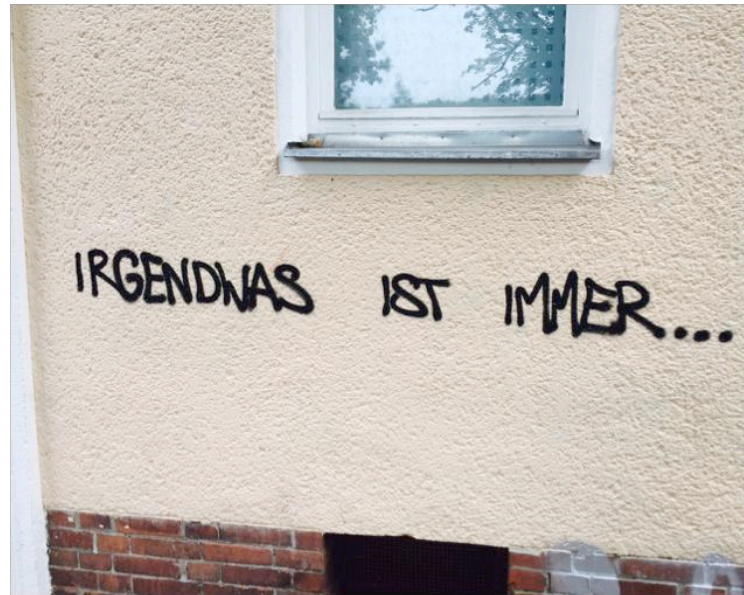 IRGENDWAS IST IMMER....